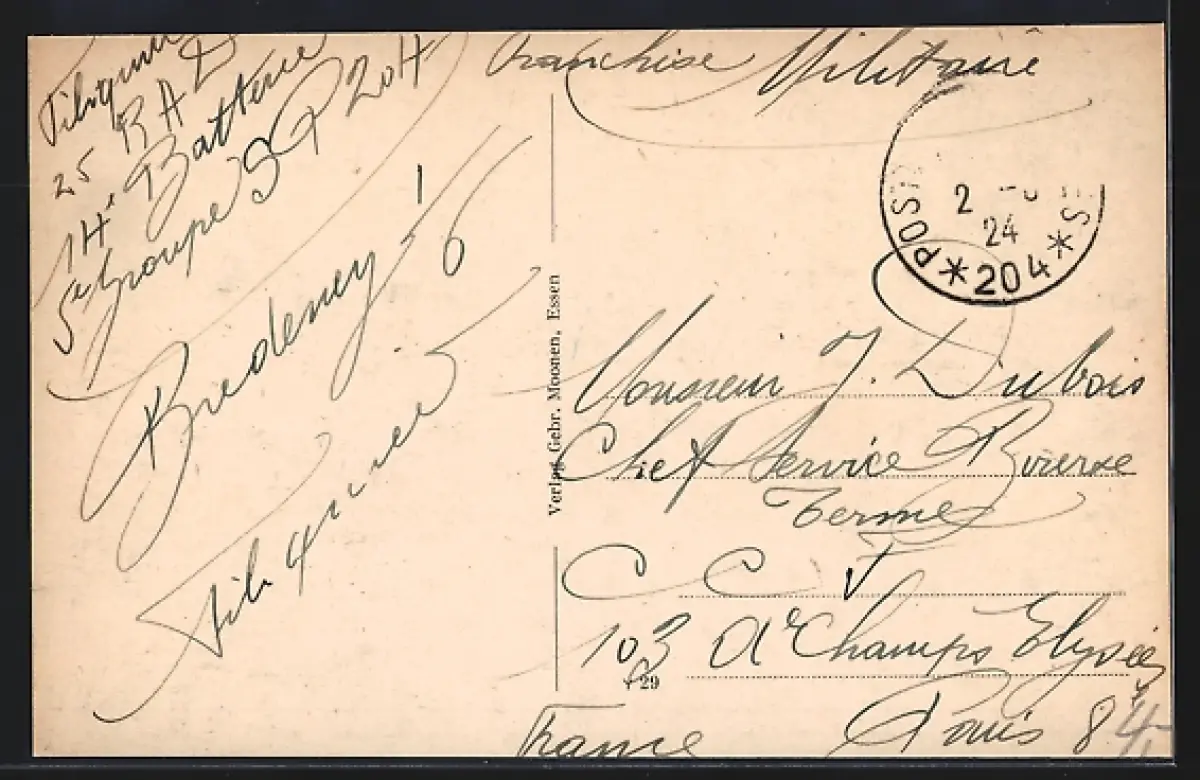 25 RAD
14e Batterie
5e groupe SP 204
Bredeney 1/6
Franchise Militaire
*POSTE
2 24
*204*
Verlag Gebr. Moonen, Essen
Monsieur J. Dubois
Chef Service Bourse
Terme
C C F
103 Ae Champs Elysées
29
Paris 8e
France